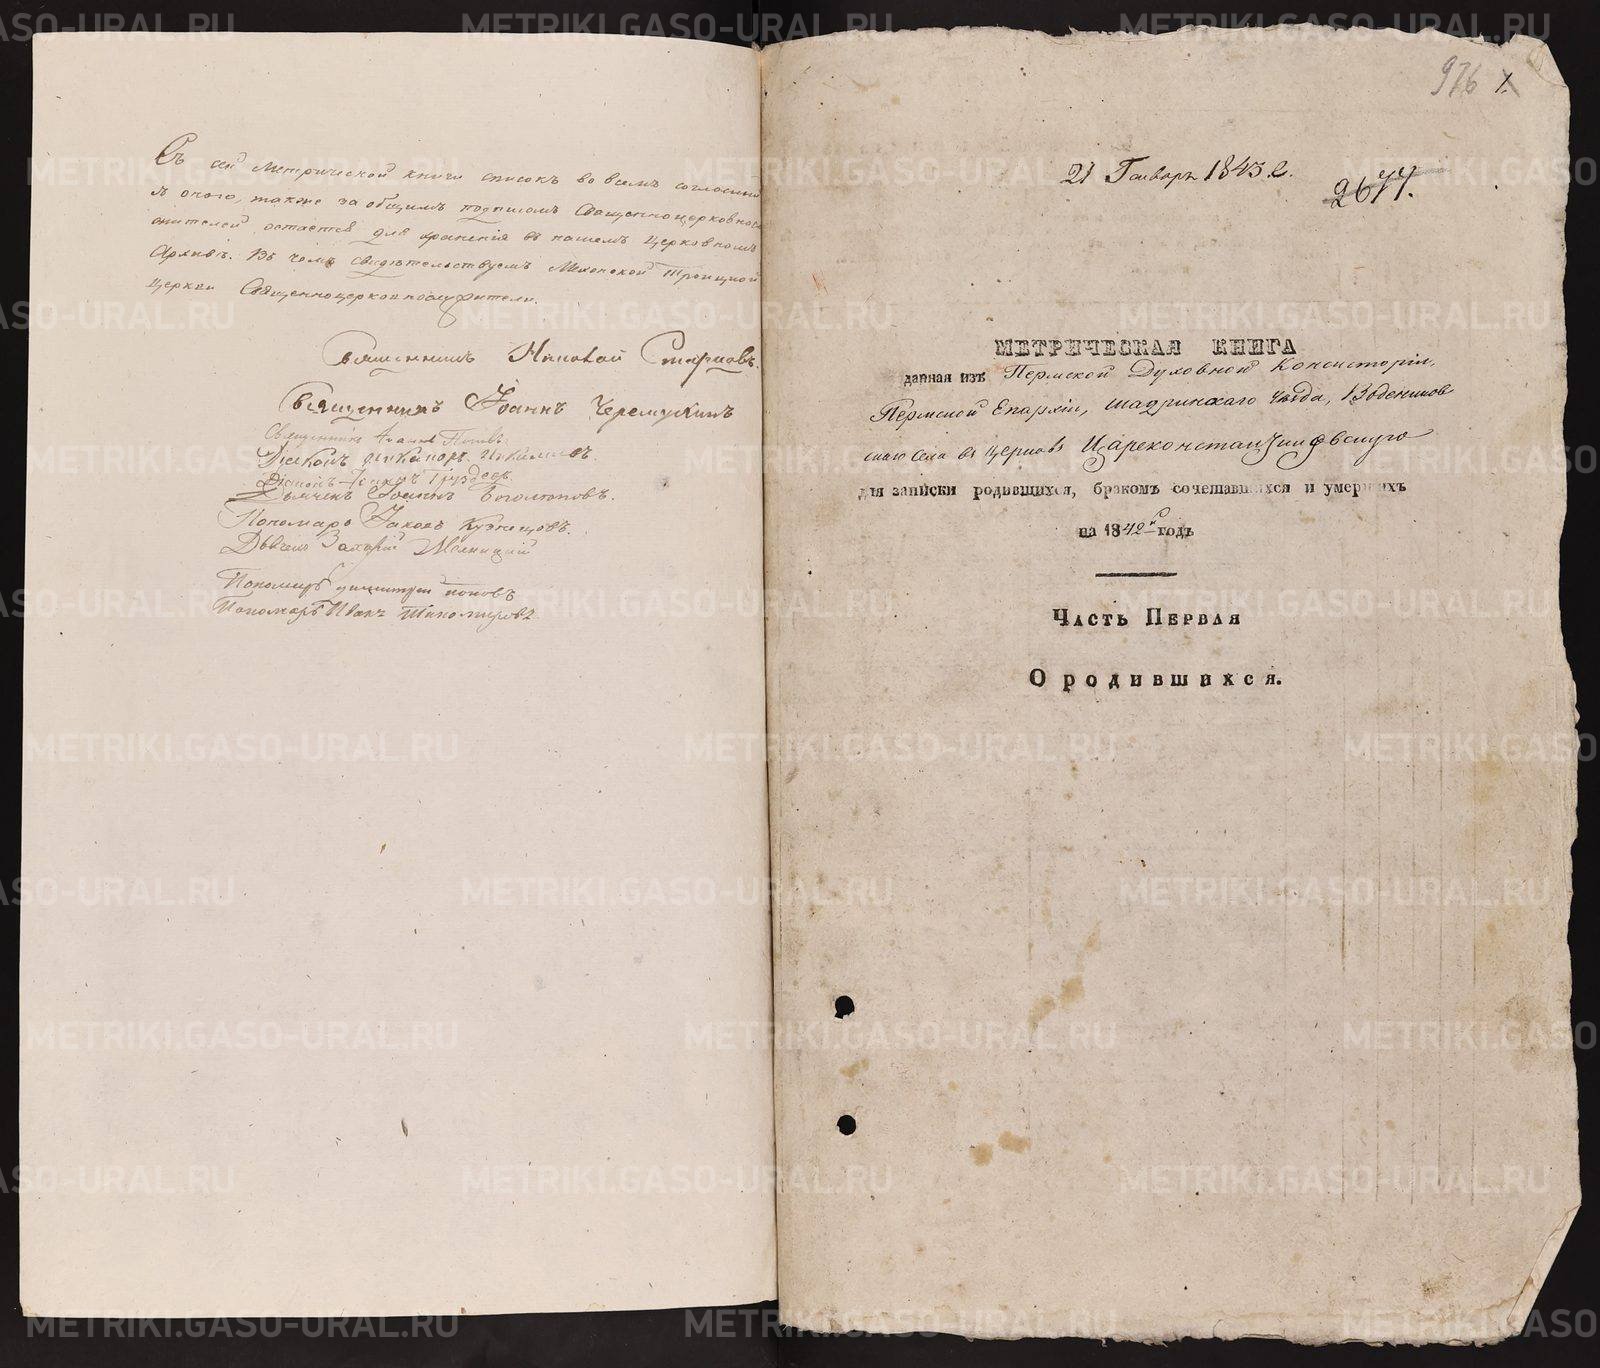 Съ сей Метрической книги списокъ во всемъ согласный
съ оною, также за общимъ подписомъ Священноцерковнослу
жителей, остается для храненія въ нашемъ Церковномъ
Архивѣ. Въ чемъ свидѣтельствуемъ Мехонской Троицкой
Церкви Священноцерковнослужители.
Священникъ Николай
Священникъ Іоаннъ Черемухинъ
Священникъ Попов
Діаконъ Никаноръ
Діаконъ Груздевъ
Дьячекъ Іоаннъ Боголюповъ.
Пономарь Іаковъ Кузнецовъ.
Дьячекъ
Пономарь Димитрій Поповъ
Пономарь Иванъ Тихомировъ
976 1.
21 Генваря 1843 г.
2677.
МЕТРИЧЕСКАЯ КНИГА
данная изъ Пермской Духовной Консисторіи,
Пермской Епархіи, Шадринскаго уѣзда, Воденников
скаго Села въ Церковь Цареконстантиновскую
для записки родившихся, бракомъ сочетавшихся и умершихъ
на 1842й годъ
Часть Первая
О родившихся.
METRIKI.GASO-URAL.RU